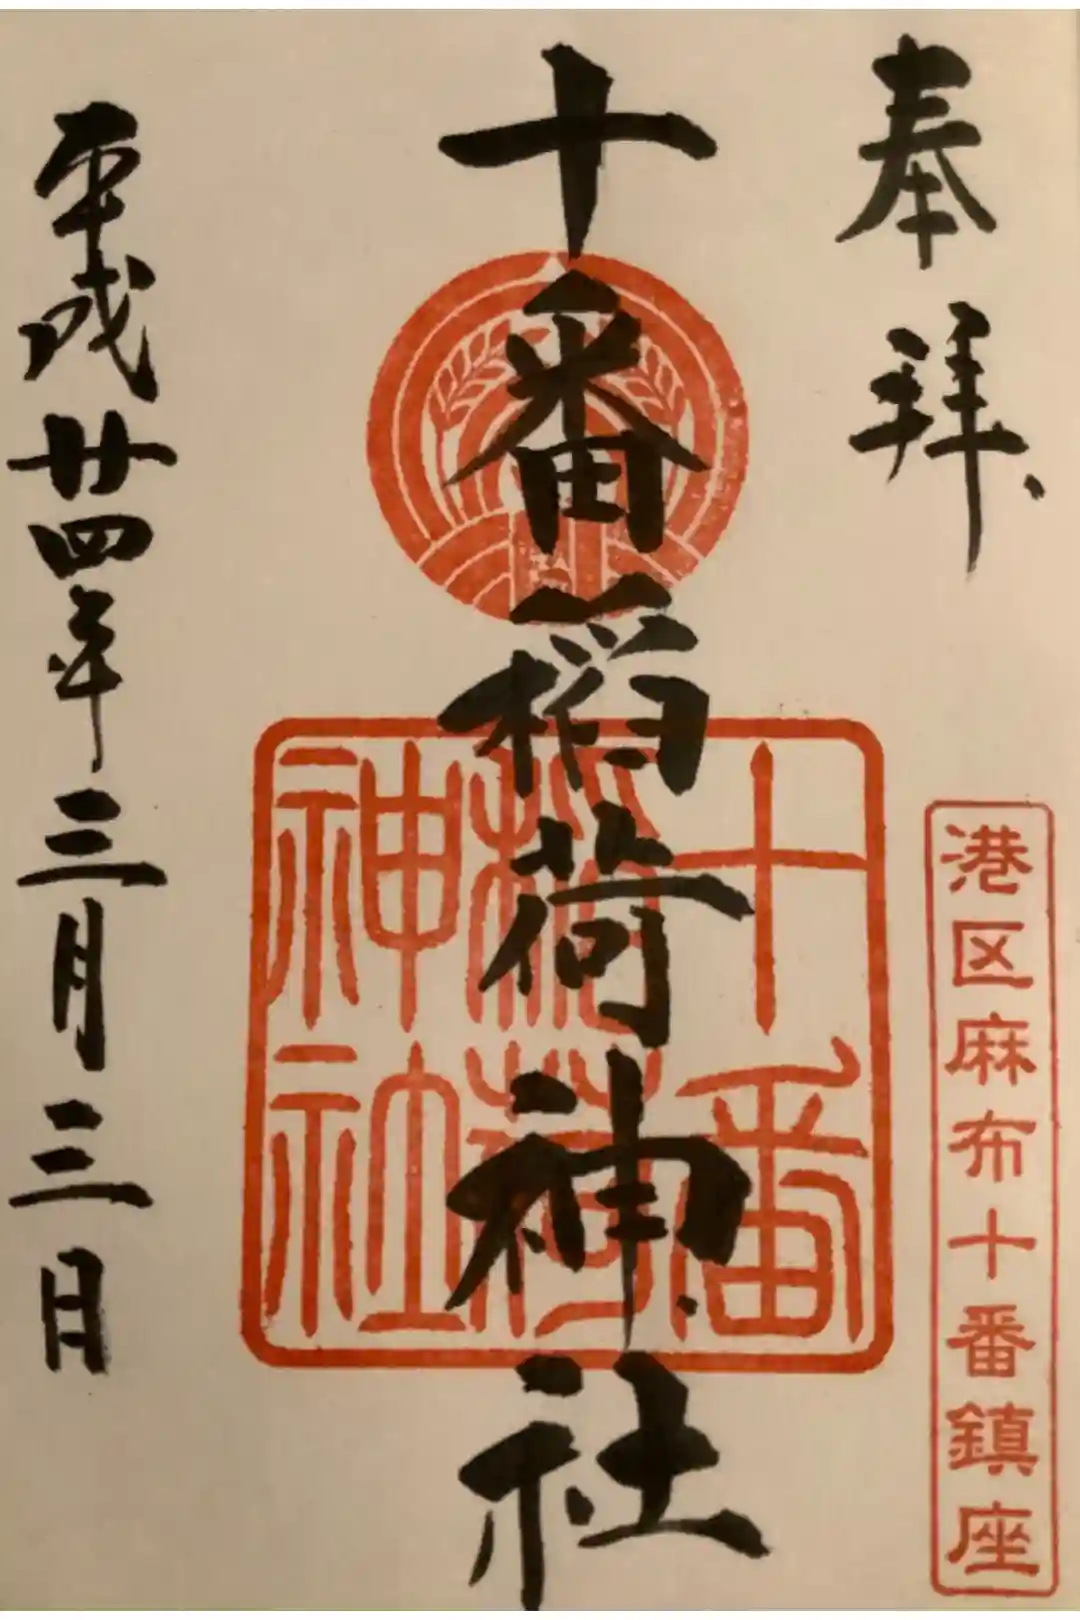 奉拝
港区麻布十番鎮座
十番稲荷神社
十番
稲荷
神社
平成廿四年三月三日